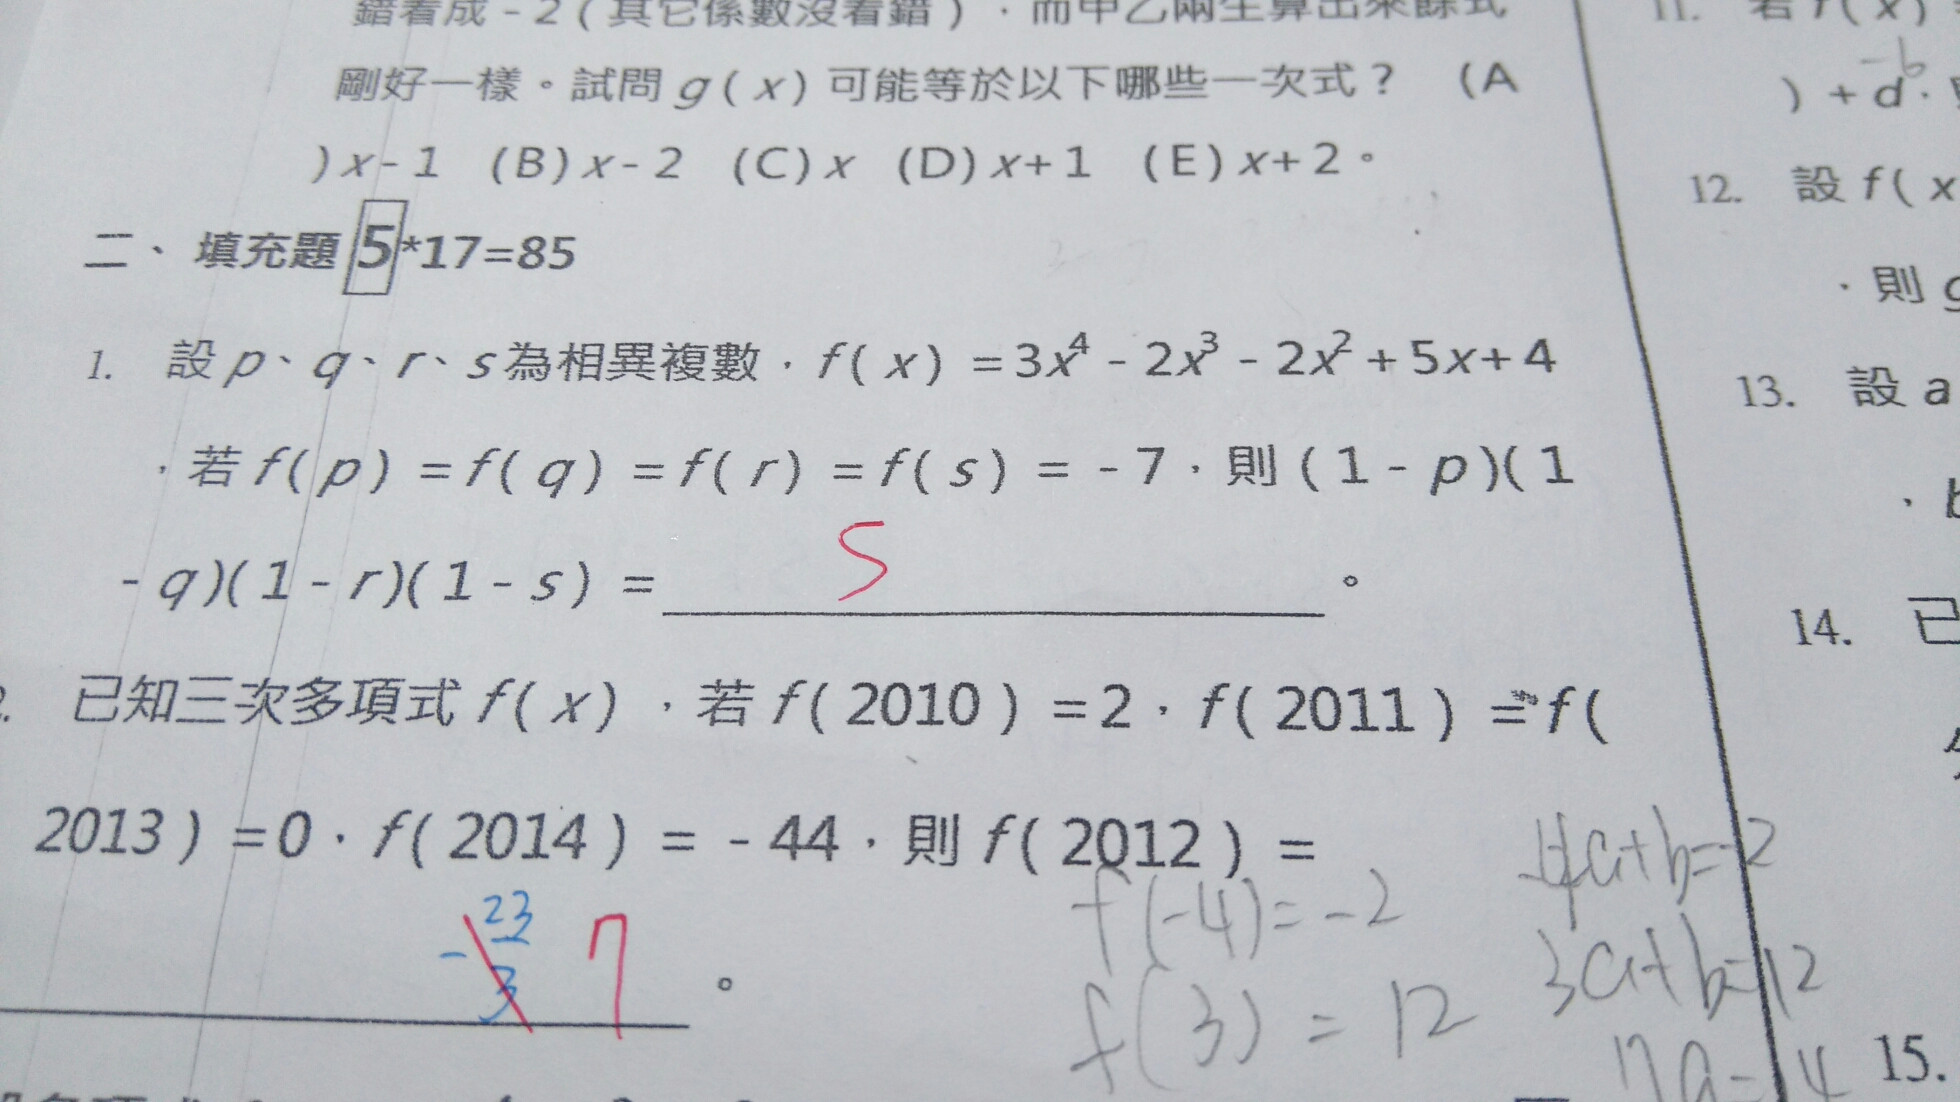 錯看成-2(其它係數沒看錯),而甲乙兩生算出來餘式
剛好一樣。試問g(x)可能等於以下哪些一次式? (A
)x-1 (B)x-2 (C)x (D)x+1 (E)x+2。
二、填充題5*17=85
1. 設p、q、r、s為相異複數,f(x)=3x⁴-2x³-2x²+5x+4
,若f(p)=f(q)=f(r)=f(s)=-7,則(1-p)(1
-q)(1-r)(1-s)=
5
。
已知三次多項式f(x),若f(2010)=2,f(2011)=f(
2013)=0,f(2014)=-44,則f(2012)=
-23/3 7
。
f(-4)=-2
f(3)=12
-4a+b=-2
3a+b=12
11. 若f(x)
-b
)+d,
12. 設f(x
,則g
13. 設a
,b
14. 已
15.